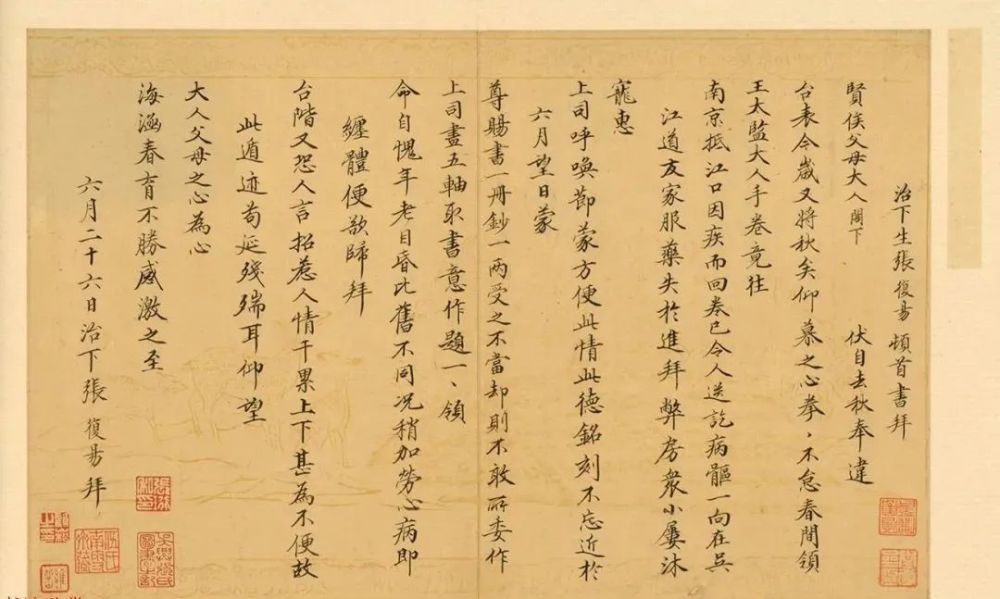 治下生張復昜頓首書拜
賢侯父母大人閣下 伏自去秋奉違
台表今歲又將秋矣仰慕之心拳、不怠春間領
王太監大人手卷竟往
南京抵江口因疾而回卷已令人送訖病軀一向在吳
江道友家服藥失於進拜弊房衆小屢沐
寵惠
上司呼喚節蒙方便此情此德銘刻不忘近於
六月望日蒙
尊賜書一冊鈔一兩受之不當却則不敢所委作
上司畫五軸取書意作題一、領
命自愧年老目昏比舊不同况稍加勞心病即
纏體便欲歸拜
台階又恐人言招惹人情干累上下甚為不便故
此遁迹苟延殘喘耳仰望
大人父母之心為心
海涵春育不勝感激之至
六月二十六日治下張復昜拜